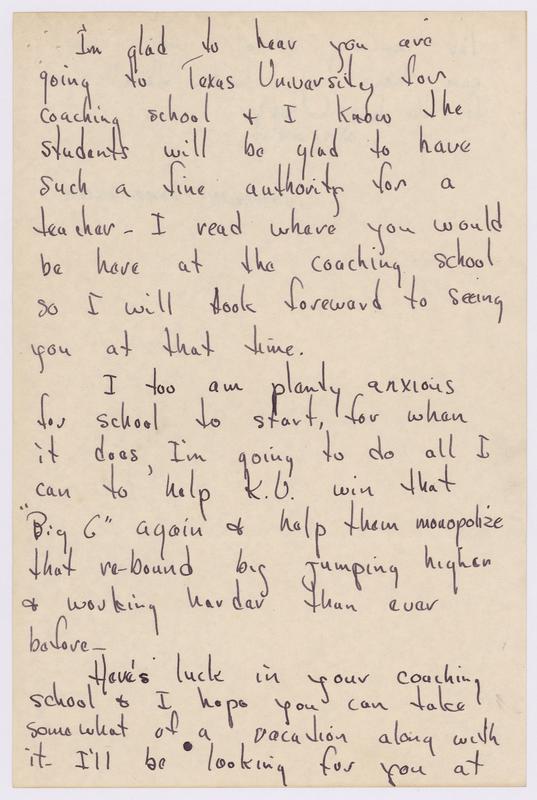 I'm glad to hear you are
going to Texas University for
coaching school & I know the
students will be glad to have
such a fine authority for a
teacher - I read where you would
be here at the coaching school
so I will look foreward to seeing
you at that time.
I too am plenty anxious
for school to start, for when
it does, I'm going to do all I
can to help K.U. win that
"Big 6" again & help them monopolize
that re-bound by jumping higher
& working harder than ever
before -
Here's luck in your coaching
school & I hope you can take
somewhat of a vacation along with
it - I'll be looking for you at